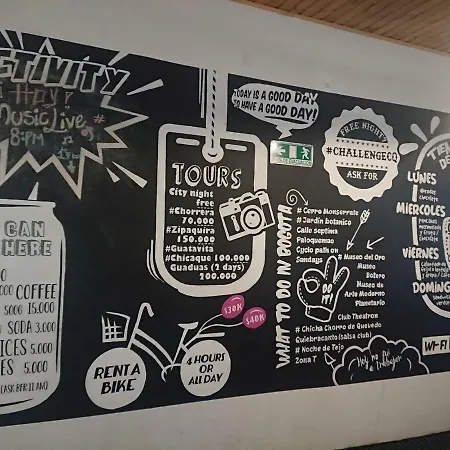 CTIVITY
Music Live
8:PM
CAN
HERE
COFFEE
5000 15.000
SODA 3.000
ICES 5.000
ES 5.000
TOURS
City night
free
#Chorrera
70.000
#Zipaquira
150.000
#Guatavita
#Chicaque 100.000
Guaduas (2 days)
200.000
RENT A
BIKE
4 HOURS
OR
ALL DAY
$30K
$40K
TODAY IS A GOOD DAY
TO HAVE A GOOD DAY!
WHAT TO DO IN BOGOTA
# Cerro Monserrate
# Jardin botanico
Calle septima
Paloquemao
Cyclo path on
Sundays
# Museo del Oro
Museo
Botero
Museo de
Arte Moderno
Planetario
DO
IT!
Club Theatron
# Chicha Chorro de Quevedo
Quiebracanto (salsa club)
# Noche de Tejo
Zona T
FREE NIGHT
#CHALLENGECQ
ASK FOR
LUNES
MIERCOLES
VIERNES
DOMING
WI-FI